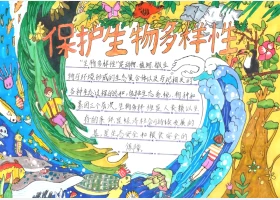 保护生物多样性
"生物多样性"是动物、植物、微生
物与环境形成的生态复合体以及与此相关的
各种生态过程的总和,包括生态系统、物种和
基因三个层次。生物多样性是人类赖以生
存的条件,是经济社会可持续发展的
基础,是生态安全和粮食安全的
保障。